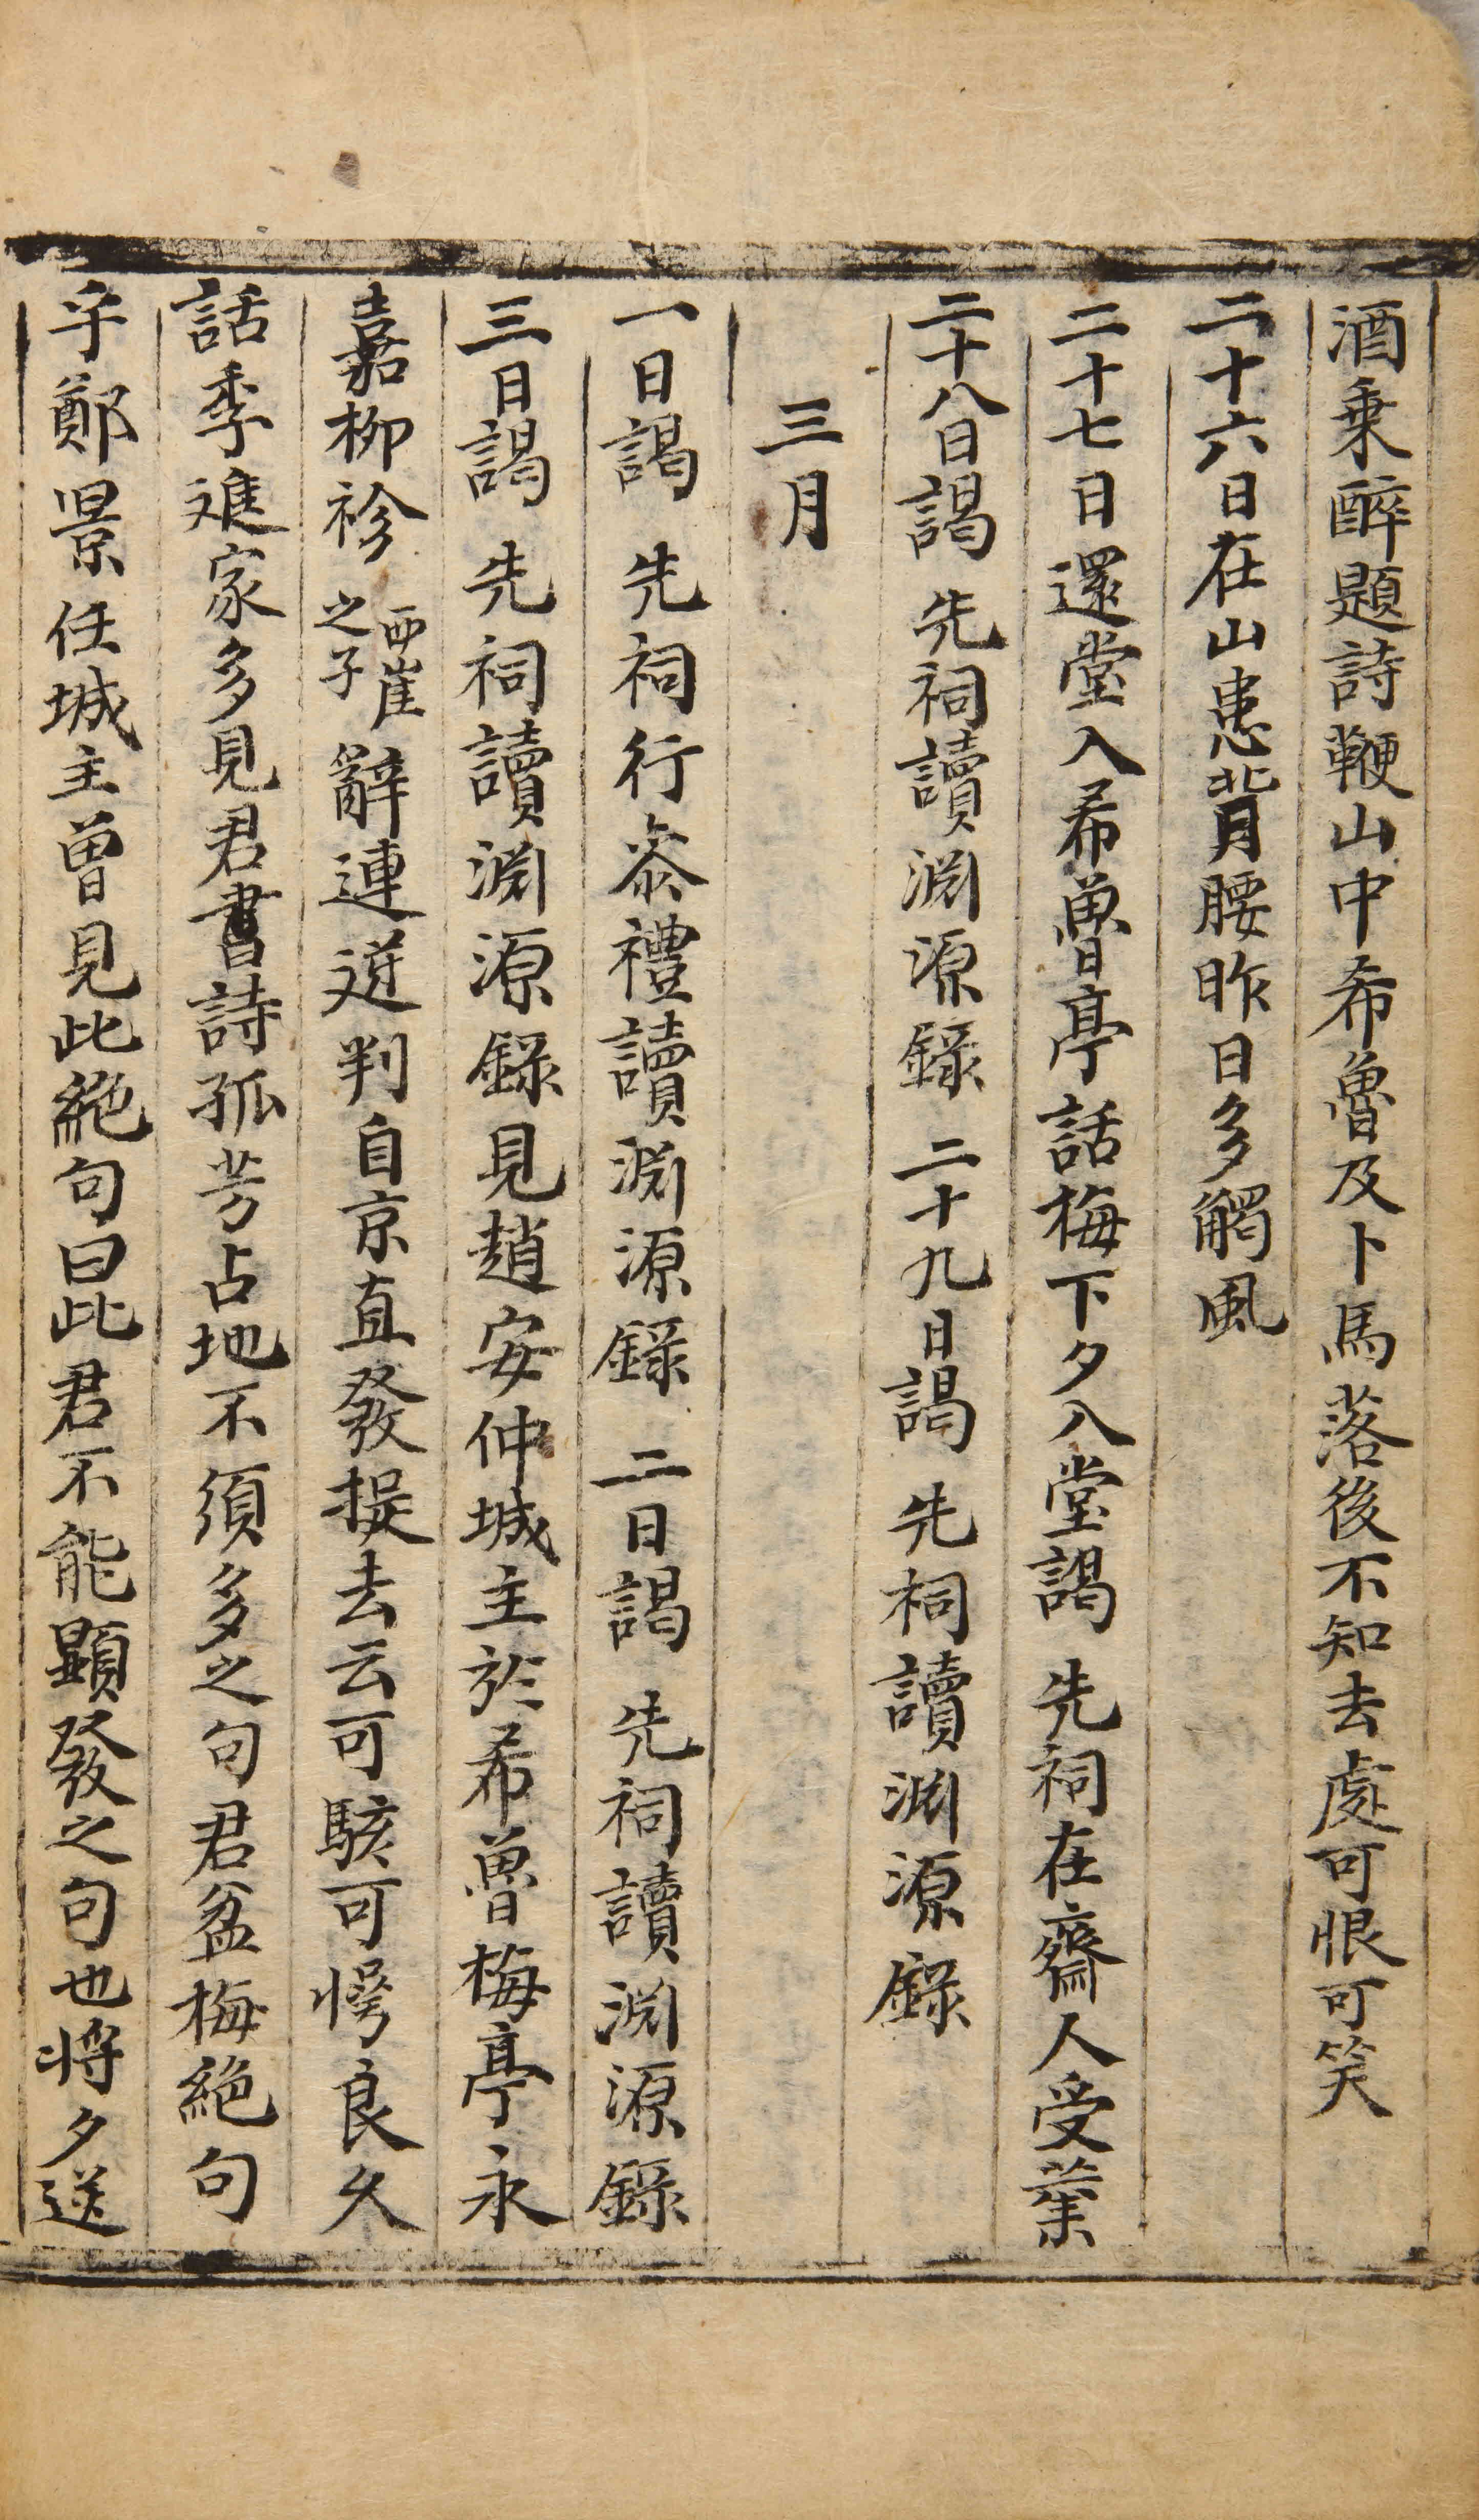 酒乗醉題詩鞭山中希魯及卜馬落後不知去處可恨可笑
二十六日在山患背腰昨日多觸風
二十七日還堂入希魯亭話梅下夕入堂謁 先祠在齋人受業
二十八日謁 先祠讀渊源錄 二十九日謁 先祠讀渊源錄
三月
一日謁 先祠行叅禮讀渊源錄 二日謁 先祠讀渊源錄
三日謁 先祠讀渊源錄見趙安仲城主於希魯梅亭永
嘉柳袗西崖之子辭連逆判自京直發捉去云可駭可愕良久
話季進家多見君書詩孤芳占地不須多之句君盆梅絶句
乎鄭景任城主曾見此絶句曰此君不能顯發之句也將夕送